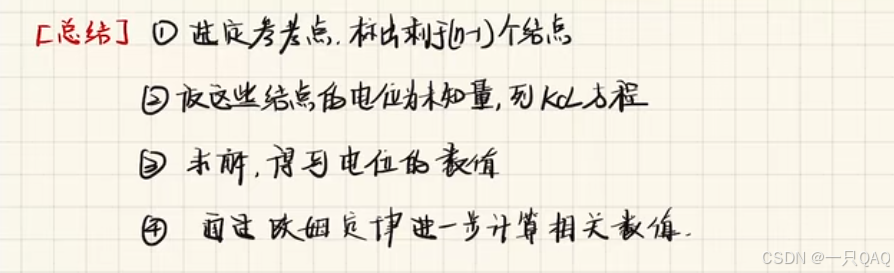 [总结] ① 选定参考点. 标出剩于(n-1)个结点
② 设这些结点的电位为未知量, 列KCL方程
③ 求解, 得到电位的数值
④ 通过欧姆定律进一步计算相关数值.
CSDN @一只QAQ